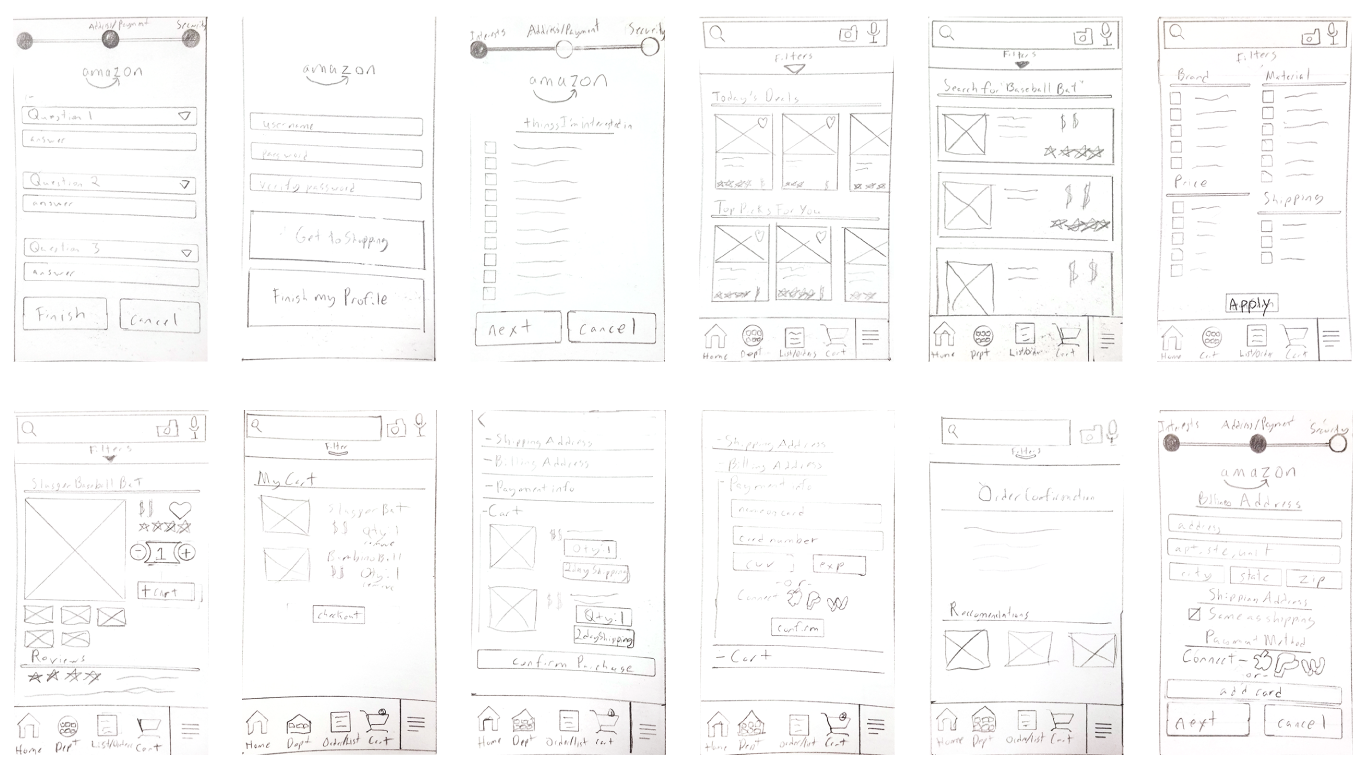 Address/Payment Security
amazon
Question 1
answer
Question 2
answer
Question 3
answer
Finish Cancel
amazon
username
password
verify password
Get to Shopping
Finish my Profile
Interests Address/Payment Security
amazon
things I'm interested in
next cancel
Filters
Today's Deals
Top Picks For You
Home Dept Cart
Filters
Search for "Baseball Bat"
$$
$$
$$
Home Dept Cart
Filters
Brand Material
Price
Shipping
Apply
Home Cart Cart
Filters
Slugger Baseball Bat
$$
- 1 +
+ cart
Reviews
Home Dept Cart
Filter
My Cart
Slugger Bat
$$ Qty:1
remove
$$ Qty:1
remove
checkout
Home Dept Order/list Cart
- Shipping Address
- Billing Address
- Payment info
- Cart
$$
Qty:1
2day Shipping
$$
Qty:1
2day Shipping
Confirm Purchase
Home Dept Order/list Cart
- Shipping Address
- Billing Address
- Payment info
name on card
card number
cvv exp
-or-
Connect
confirm
- Cart
Home Dept Order/list Cart
Filters
Order Confirmation
Home Dept Order/list Cart
Interests Address/Payment Security
amazon
Address
address
city state zip
Shipping Address
Same as shipping
Payment Method
Connect -
-or-
add card
next cancel